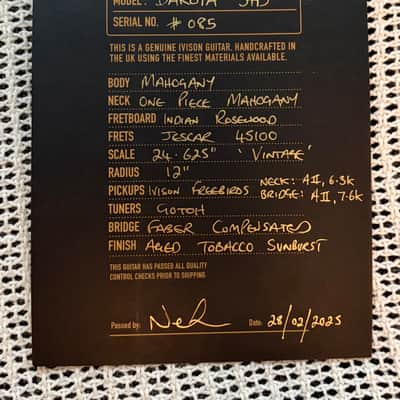 MODEL: DAKOTA SHJ
SERIAL NO. #085
THIS IS A GENUINE IVISON GUITAR, HANDCRAFTED IN
THE UK USING THE FINEST MATERIALS AVAILABLE.
BODY MAHOGANY
NECK ONE PIECE MAHOGANY
FRETBOARD INDIAN ROSEWOOD
FRETS JESCAR 45100
SCALE 24.625" 'VINTAGE'
RADIUS 12"
PICKUPS IVISON FREEBIRDS NECK: AII, 6.3k
BRIDGE: AII, 7.6k
TUNERS GOTOH
BRIDGE FABER COMPENSATED
FINISH AGED TOBACCO SUNBURST
THIS GUITAR HAS PASSED ALL QUALITY
CONTROL CHECKS PRIOR TO SHIPPING
Passed by: Date: 28/02/2025